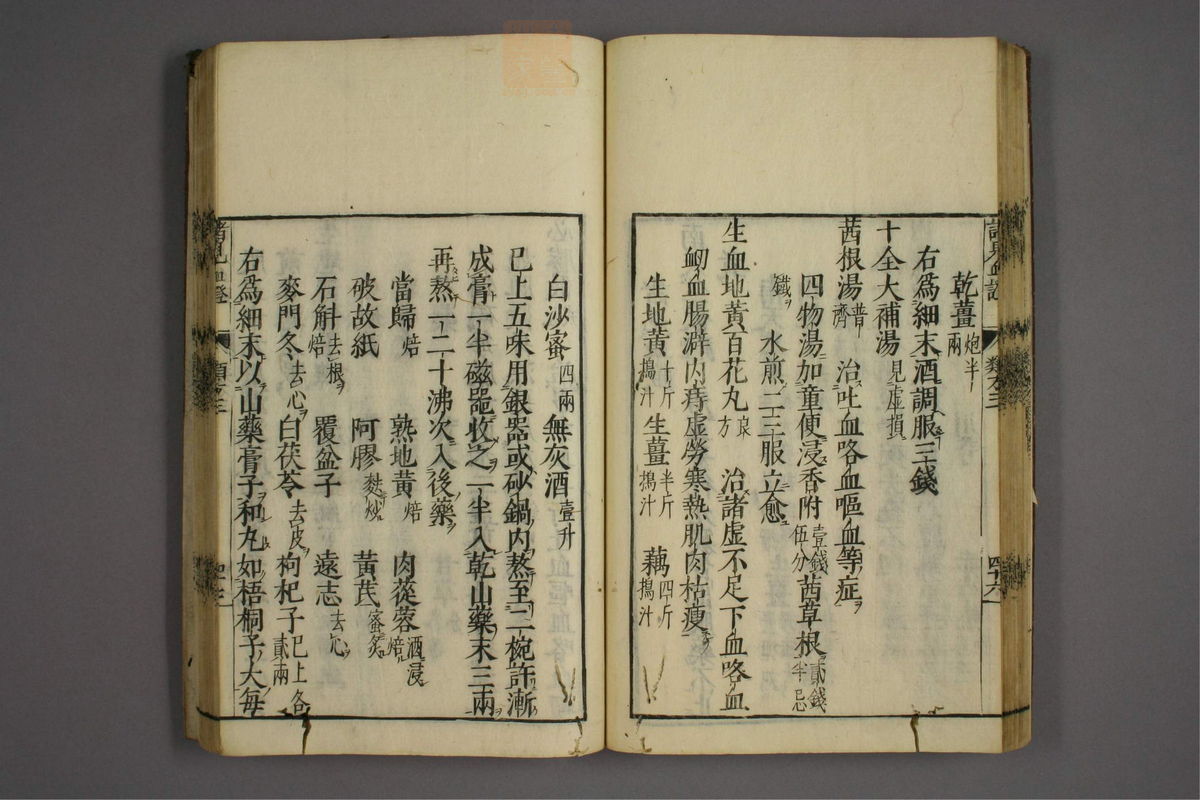 乾薑炮半兩
右爲細末酒調服三錢
十全大補湯見虛損
茜根湯昔齊 治吐血咯血嘔血等症
四物湯加童便浸香附壹錢伍分茜草根貳錢半忌
鐵 水煎二三服立愈
生血地黃百花丸良方 治諸虛不足下血咯血
衂血腸澼内痔虛勞寒熱肌肉枯瘦
生地黃十斤搗汁 生薑半斤搗汁 藕四斤搗汁
白沙蜜四兩 無灰酒壹升
已上五味用銀器或砂鍋内熬至二椀許漸
成膏一半磁噐收之一半入乾山藥末三兩
再熬一二十沸次入後藥
當歸焙 熟地黃焙 肉蓯蓉酒浸焙
破故紙 阿膠麩炒 黃茋蜜炙
石斛去根焙 覆盆子 遠志去心
麥門冬去心 白茯苓去皮 枸杞子已上各貳兩
右爲細末以山藥膏子和丸如梧桐子大每